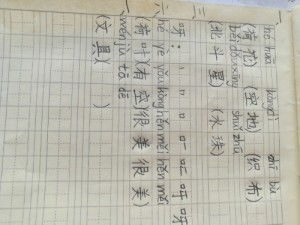 hé huā kòng dì zhī bù
(荷花) (空地) (织布)
běi dǒu xīng shuǐ zhū
(北斗星) (水珠)
呀:
hé yè yǒu kòng hěn měi hěn měi
(荷叶) (有空) (很美 很美)
wén jù
(文具) ( )